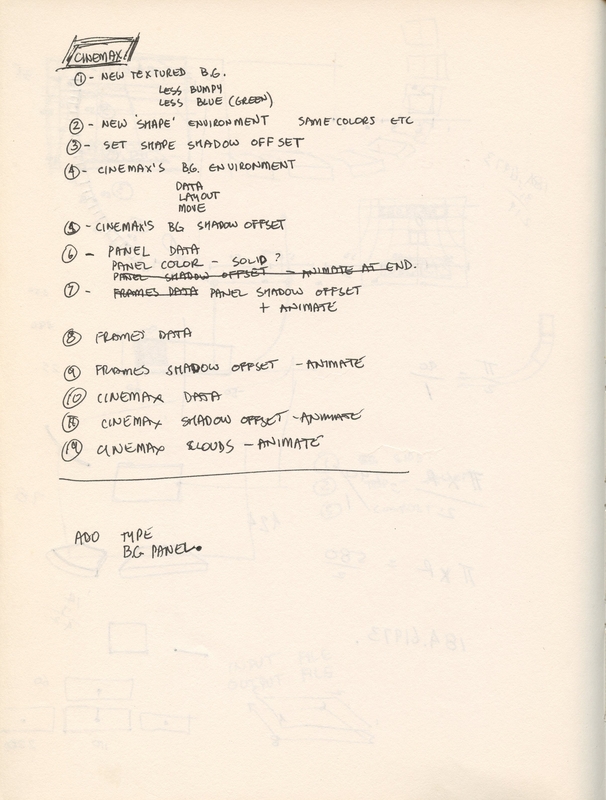 CINEMAX
① - NEW TEXTURED B.G.
LESS BUMPY
LESS BLUE (GREEN)
② - NEW 'SHAPE' ENVIRONMENT SAME COLORS ETC
③ - SET SHAPE SHADOW OFFSET
④ - CINEMAX'S B.G. ENVIRONMENT
DATA
LAYOUT
MOVE
⑤ - CINEMAX'S BG SHADOW OFFSET
⑥ - PANEL DATA
PANEL COLOR - SOLID?
PANEL SHADOW OFFSET - ANIMATE AT END.
⑦ - FRAMES DATA PANEL SHADOW OFFSET
+ ANIMATE
⑧ FRAMES DATA
⑨ FRAMES SHADOW OFFSET - ANIMATE
⑩ CINEMAX DATA
⑪ CINEMAX SHADOW OFFSET - ANIMATE
CINEMAX CLOUDS - ANIMATE
ADD TYPE
B.G PANEL.